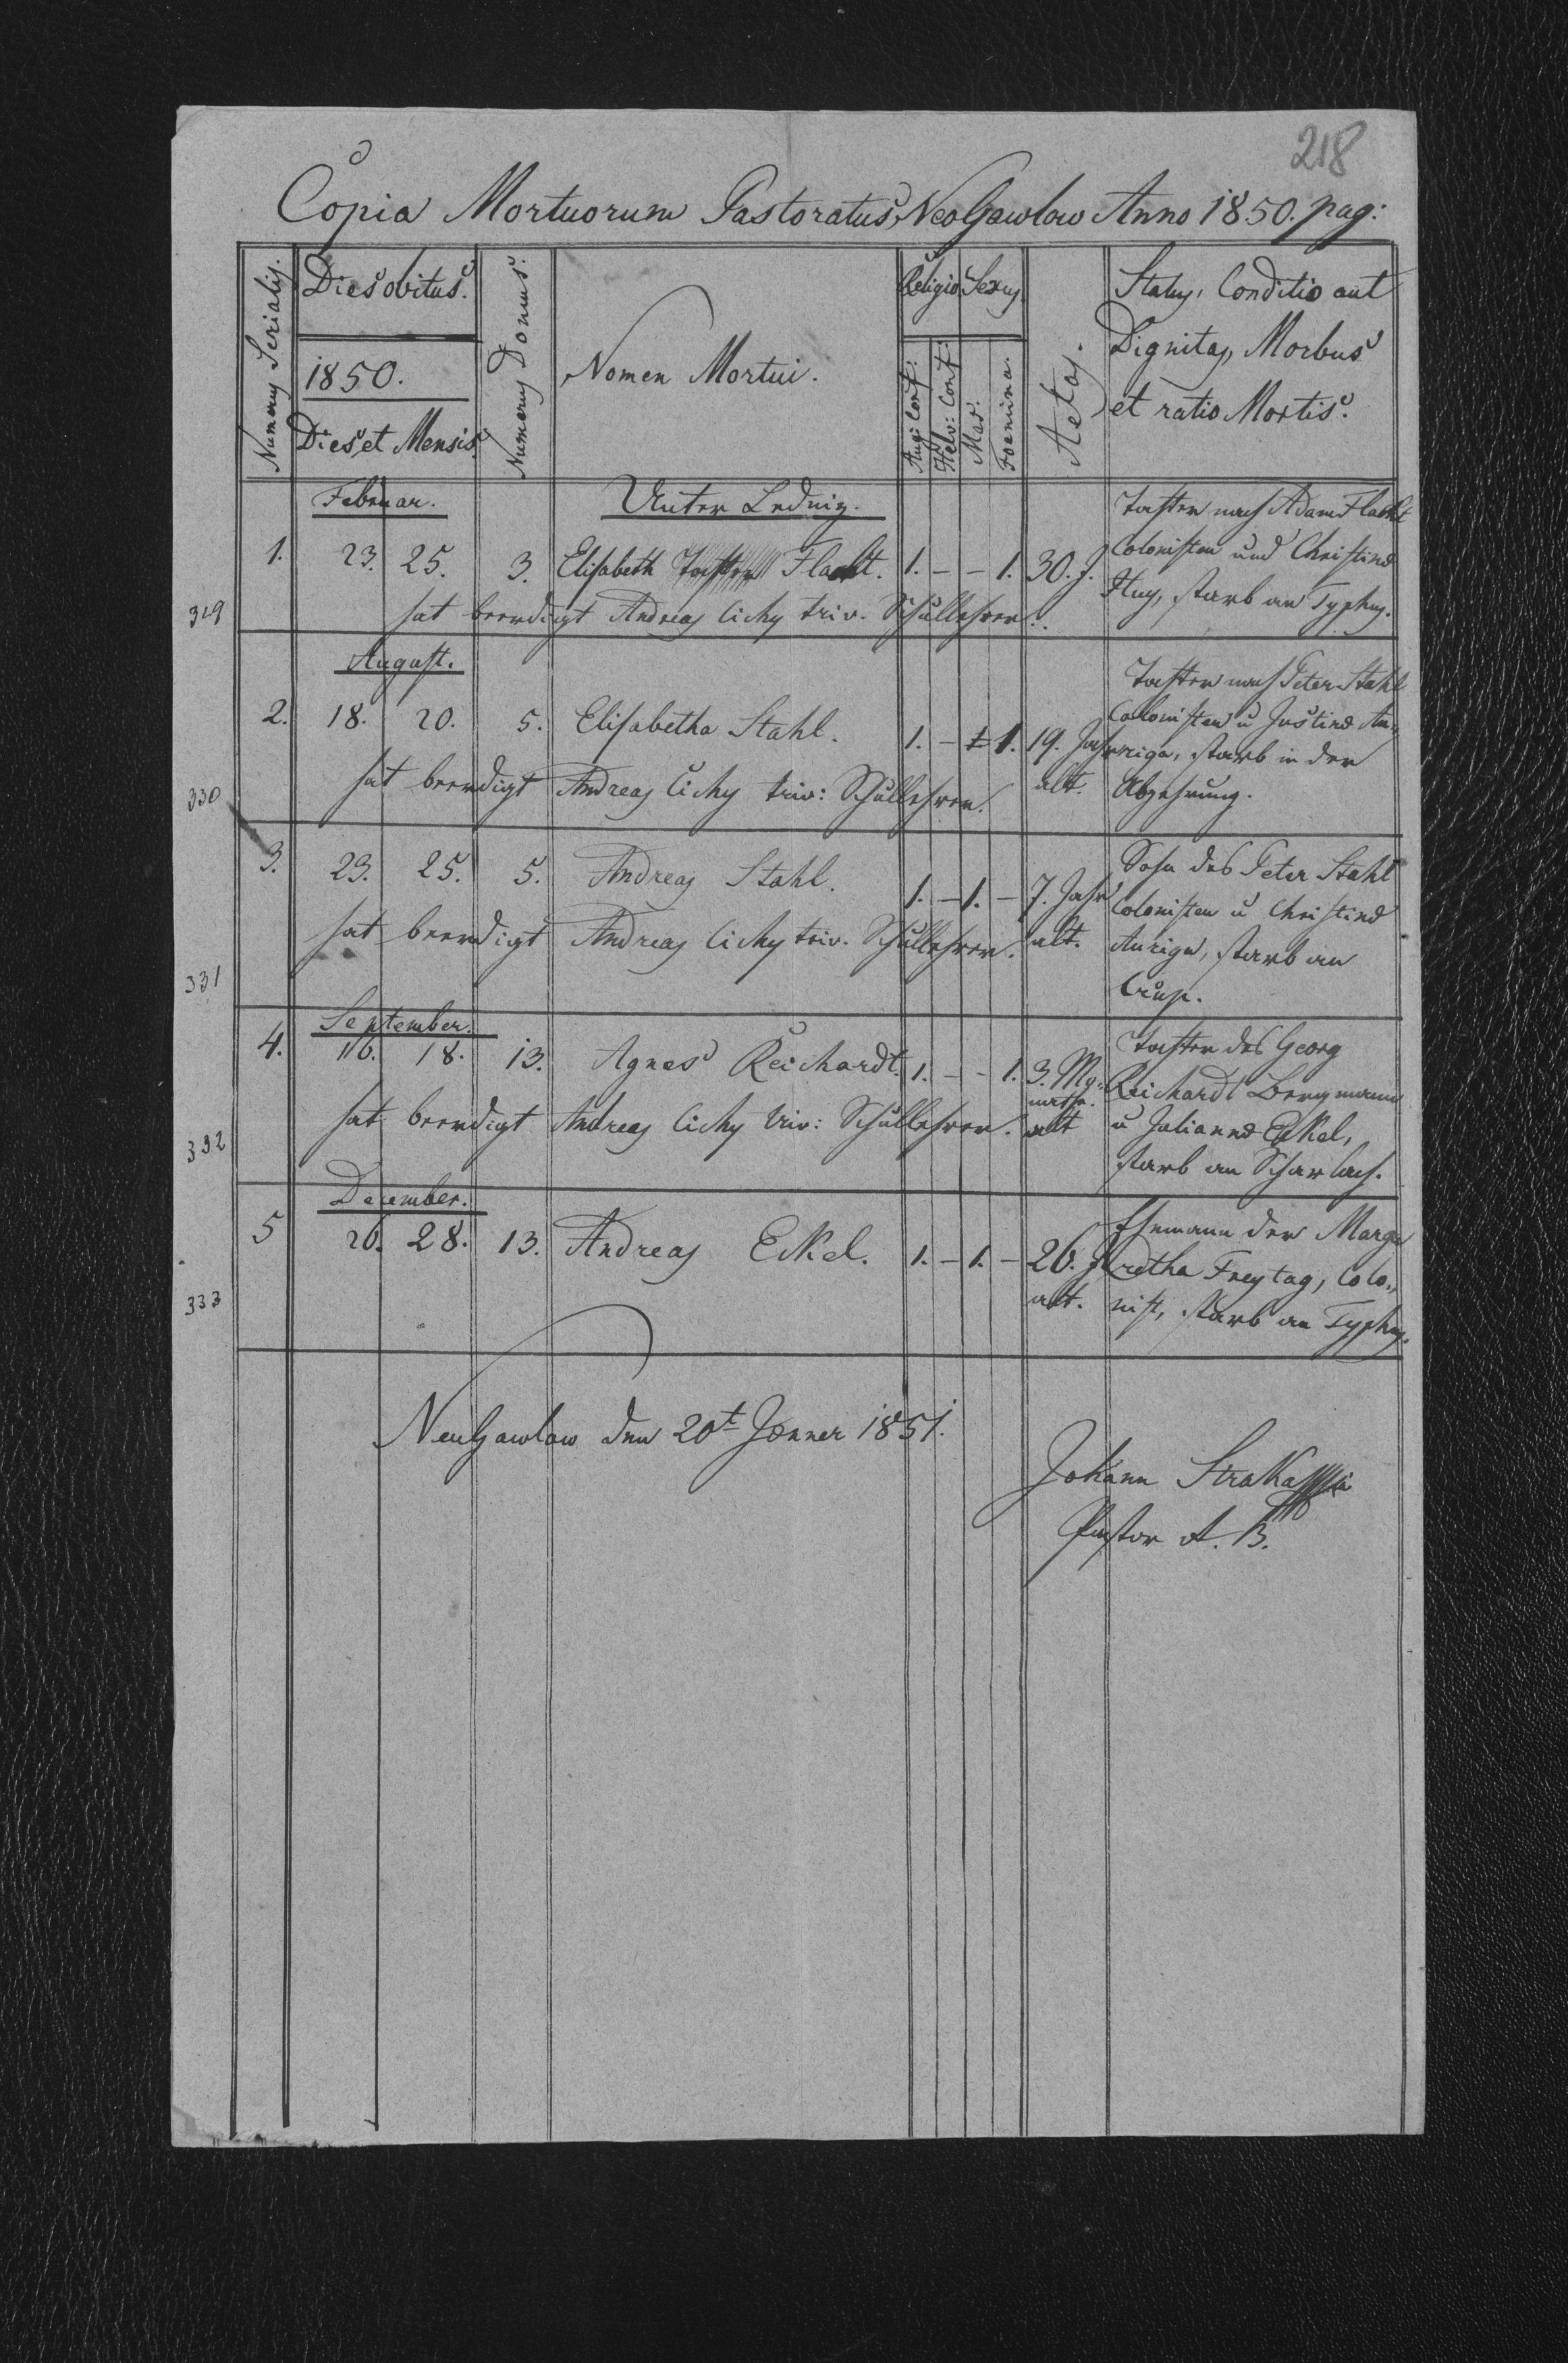 218
Copia Mortuorum Pastoratus NeoGawlow Anno 1850. pag:
Numerus Serialis.
Dies obitus.
1850.
Dies et Mensis.
Numerus Domus.
Nomen Mortui.
Religio
Aug: Conf:
Helv: Conf:
Sexus.
Mas.
Foemina.
Aetas.
Status, Conditio aut
Dignitas, Morbus
et ratio Mortis.
Februar.
Unter Lednig.
1. 23. 25. 3. Elisabeth Tochter Flacht. 1. – – 1. 30. J.
Tochter nach Adam Flacht
Colonisten und Christina
Huy, starb an Typhus.
hat beerdigt Andreas Cichy triv. Schullehrer.
329
August.
2. 18. 20. 5. Elisabetha Stahl. 1. – 1. 19. Jahr
alt.
Tochter nach Peter Stahl
Collonisten u Justina Au-
riga, starb in der
Abzehrung.
hat beerdigt Andreas Cichy triv: Schullehrer.
330
3. 23. 25. 5. Andreas Stahl. 1. – 1. – 7. Jahr
alt.
Sohn des Peter Stahl
Colonisten u Christina
Auriga, starb an
Crup.
hat beerdigt Andreas Cichy triv. Schullehrer.
331
September.
4. 16. 18. 13. Agnes Reichardt. 1. – – 1. 3. Mo-
nathe.
alt
Tochter des Georg
Reichardt Bergmann
u Julianna Eckel,
starb an Scharlach.
hat beerdigt Andreas Cichy triv: Schullehrer.
332
December.
5 26. 28. 13. Andreas Eckel. 1. – 1. – 26. J
alt.
Ehemann der Marga
retha Freytag, Colo-
nist, starb an Typhus.
333
NeuGawlow den 20t Jænner 1851.
Johann Straka
Pastor A. B.